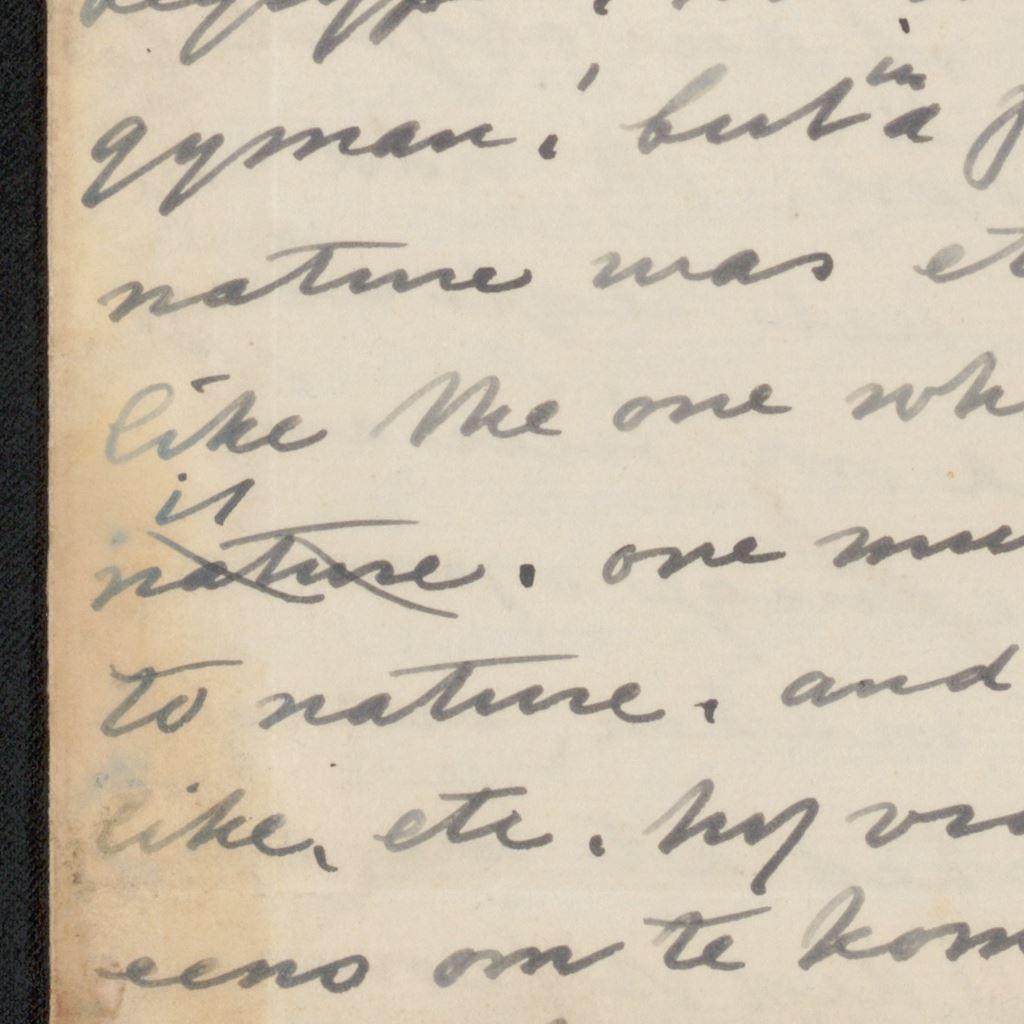 gyman, but in a
nature was
like the one
is
nature. one
to nature. and
like, etc. hy
eens om te